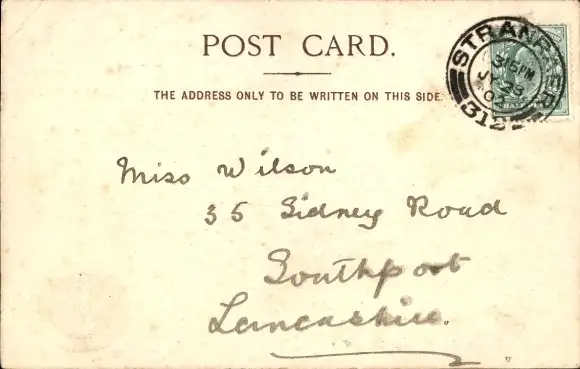 POST CARD.
THE ADDRESS ONLY TO BE WRITTEN ON THIS SIDE.
STRANRAER
315PM
JY 29
312
HALFPENNY
Miss Wilson
35 Sidney Road
Southport
Lancashire.